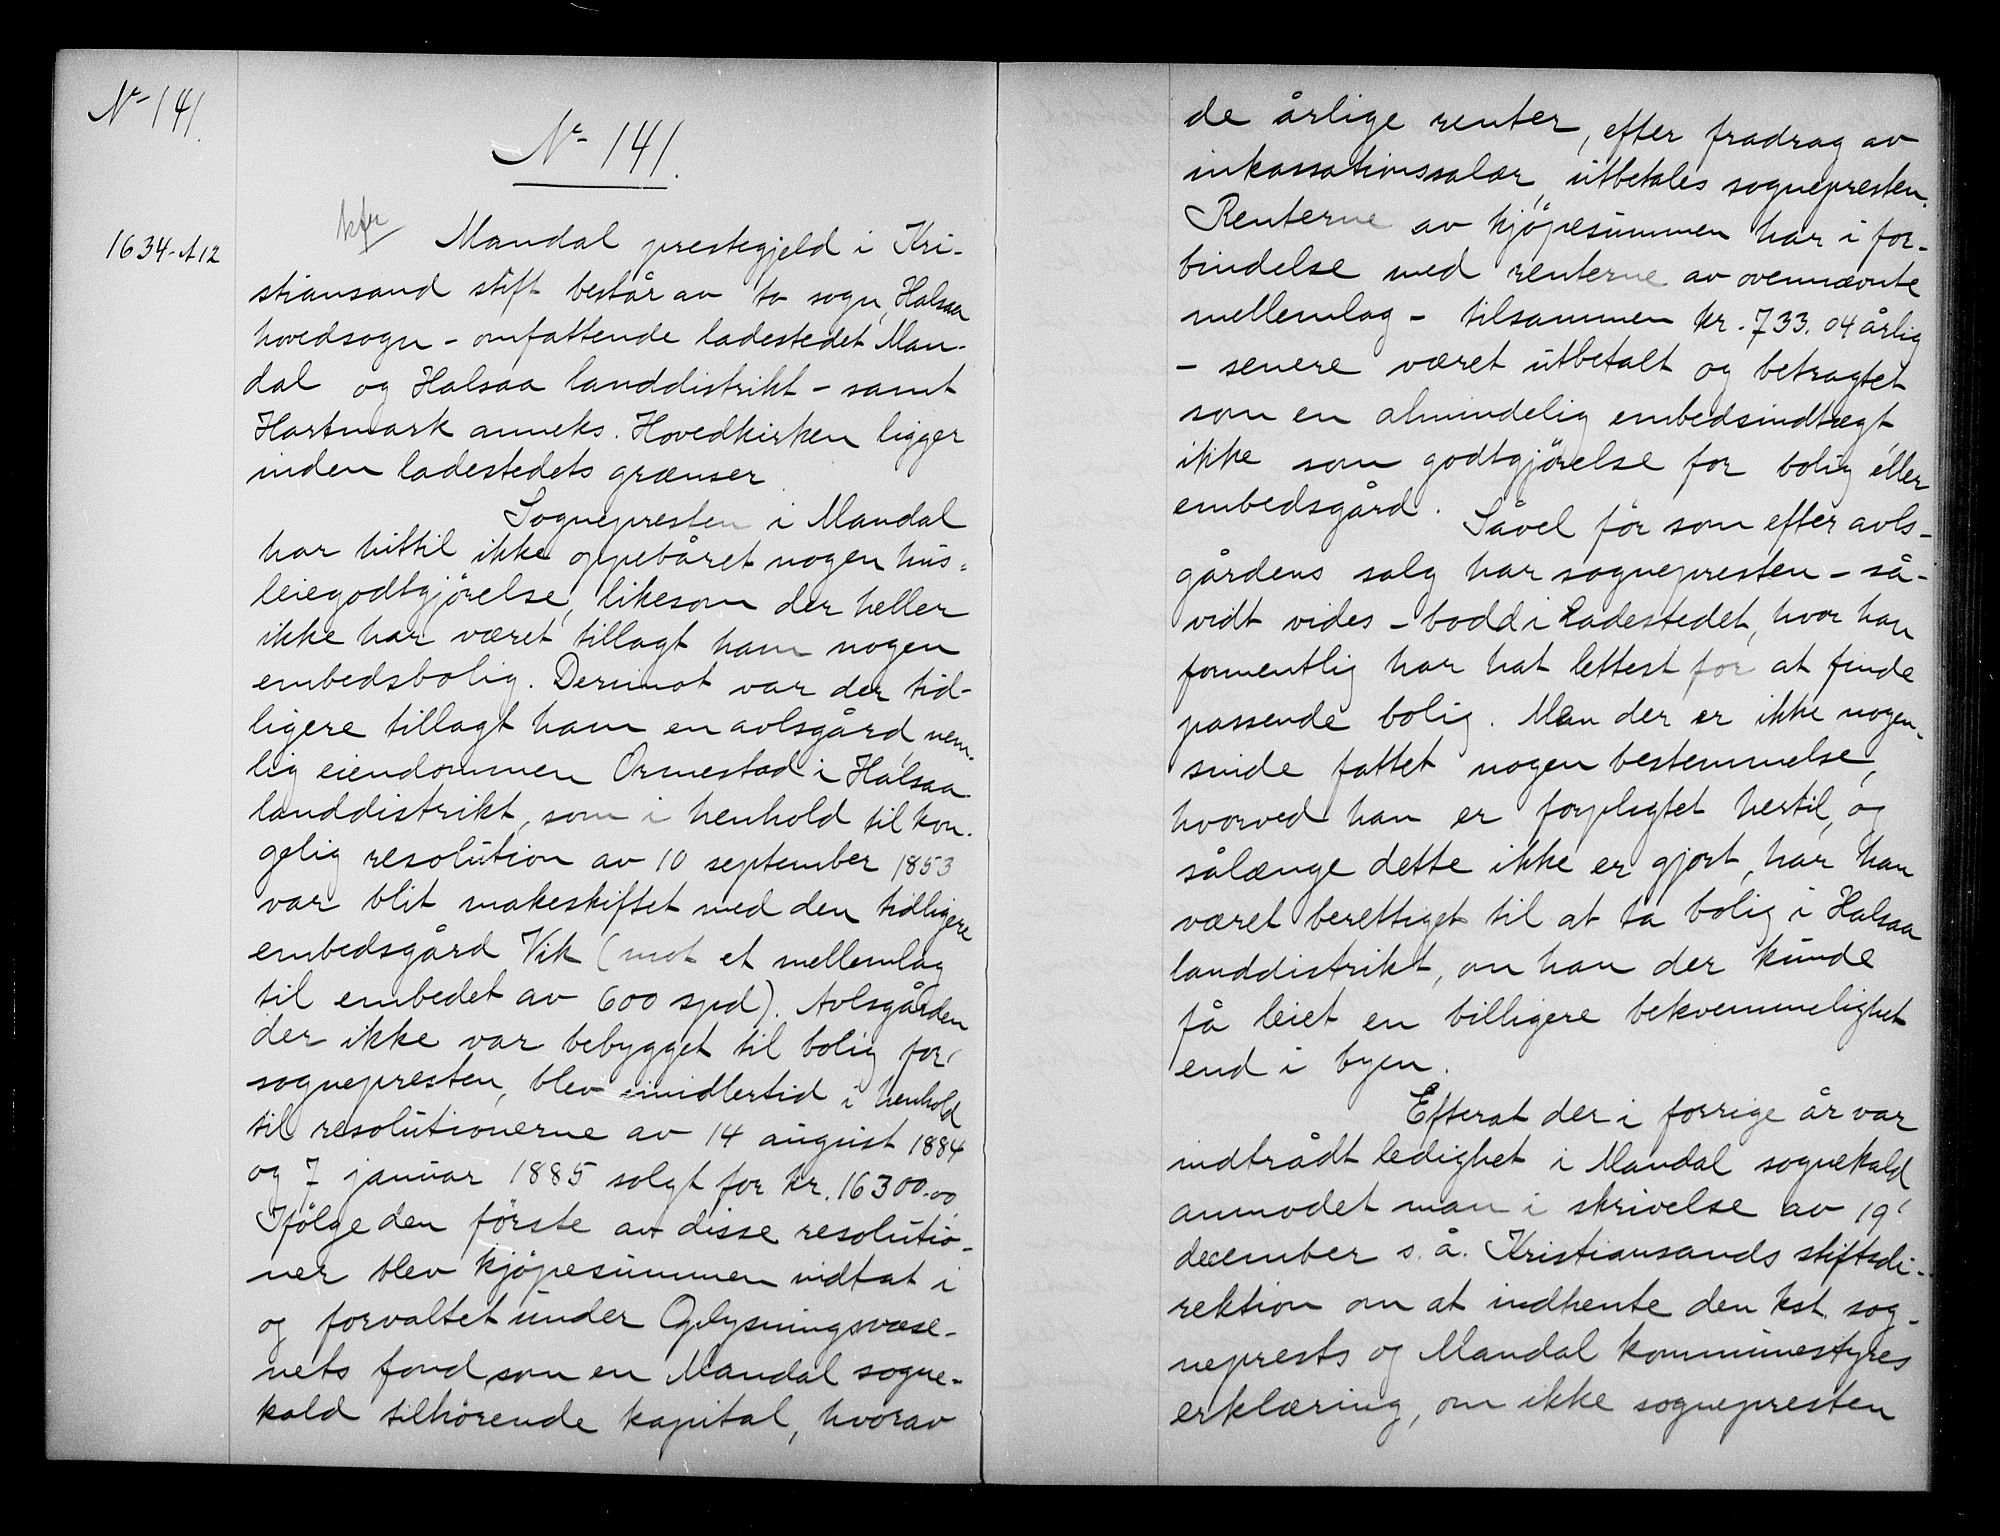 Nr 141.
Nr 141.
1634-A12
Mandal prestegjeld i Kri-
stiansand stift består av to sogn, Halsaa
hovedsogn - omfattende ladestedet Man-
dal og Halsaa landdistrikt - samt
Hartmark anneks. Hovedkirken ligger
inden ladestedets grænser.
Sognepresten i Mandal
har hittil ikke oppebåret nogen hus-
leiegodtgjørelse, likesom der heller
ikke har været tillagt ham nogen
embedsbolig. Derimot var der tid-
ligere tillagt ham en avlsgård, nem-
lig eiendommen Ormestad i Halsaa
landdistrikt, som i henhold til kon-
gelig resolution av 10 september 1853
var blit makeskiftet med den tidligere
embedsgård Vik (mot et mellemlag
til embedet av 600 spd). Avlsgården
der ikke var bebygget til bolig for
sognepresten, blev imidlertid i henhold
til resolutionerne av 14 august 1884
og 7 januar 1885 solgt for kr. 16300.00
Ifølge den første av disse resolutio-
ner blev kjøpesummen indtat i
og forvaltet under Oplysningsvæse-
nets fond som en Mandal sogne-
kald tilhørende kapital, hvorav
de årlige renter, efter fradrag av
inkassationssalær, utbetales sognepresten.
Renterne av kjøpesummen har i for-
bindelse med renterne av ovennævnte
mellemlag - tilsammen kr. 733.04 årlig
- senere været utbetalt og betragtet
som en almindelig embedsindtægt,
ikke som godtgjørelse for bolig eller
embedsgård.
Såvel før som efter avls-
gårdens salg har sognepresten - så-
vidt vides - bodd i Ladestedet, hvor han
formentlig har hat lettest for at finde
passende bolig. Men der er ikke nogen-
sinde fattet nogen bestemmelse,
hvorved han er forpligtet hertil, og
sålænge dette ikke er gjort, har han
været berettiget til at ta bolig i Halsaa
landdistrikt, om han der kunde
få leiet en billigere bekvemmelighet
end i byen.
Efterat der i forrige år var
indtrådt ledighet i Mandal sognekald
anmodet man i skrivelse av 19
december s. å. Kristiansands stiftsdi-
rektion om at indhente den kst. sog-
neprests og Mandal kommunestyres
erklæring, om ikke sognepresten